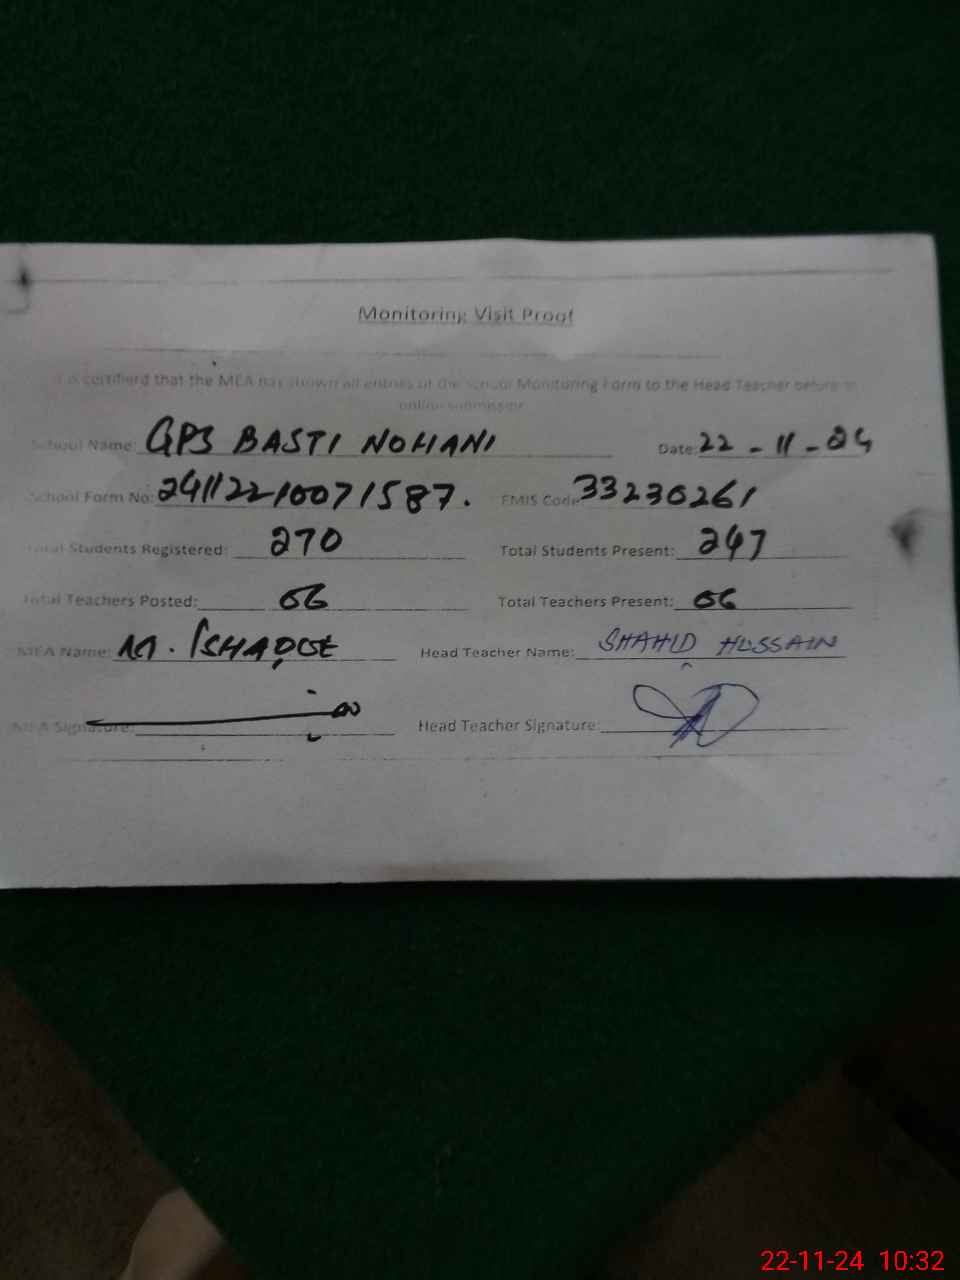 Monitoring Visit Proof
It is certifierd that the MEA has shown all entries of the School Monitoring Form to the Head Teacher before
online submission
School Name: GPS BASTI NOHANI Date: 22-11-24
School Form No: 24112210071587. EMIS Code: 33230261
Total Students Registered: 270 Total Students Present: 247
Total Teachers Posted: 06 Total Teachers Present: 06
MEA Name: M. ISHAQUE Head Teacher Name: SHAHID HUSSAIN
MEA Signature: Head Teacher Signature:
22-11-24 10:32